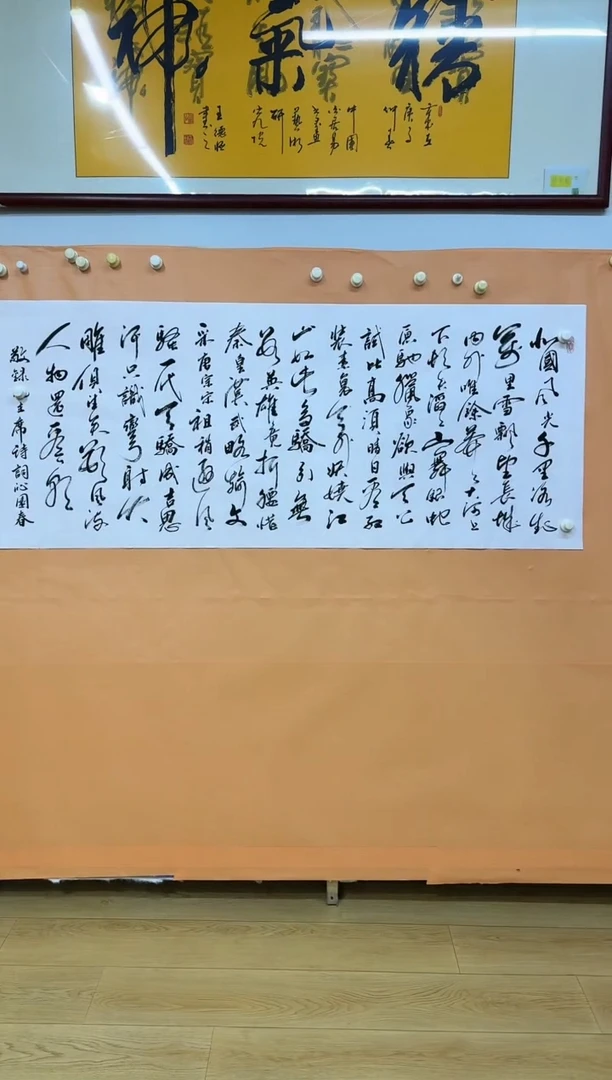 精氣神
庚子
仲春
中國
藝術
研
究院
北國風光千里冰封
萬里雪飄望長城
內外唯餘莽々大河上
下頓失滔々山舞銀蛇
原馳臘象欲與天公
試比高須晴日看紅
裝素裹分外妖嬈江
山如此多驕引無
數英雄競折腰惜
秦皇漢武略輸文
采唐宗宋祖稍遜風
騷一代天驕成吉思
汗只識彎弓射大
雕俱往矣數風流
人物還看今朝
敬録 主席詩詞沁園春